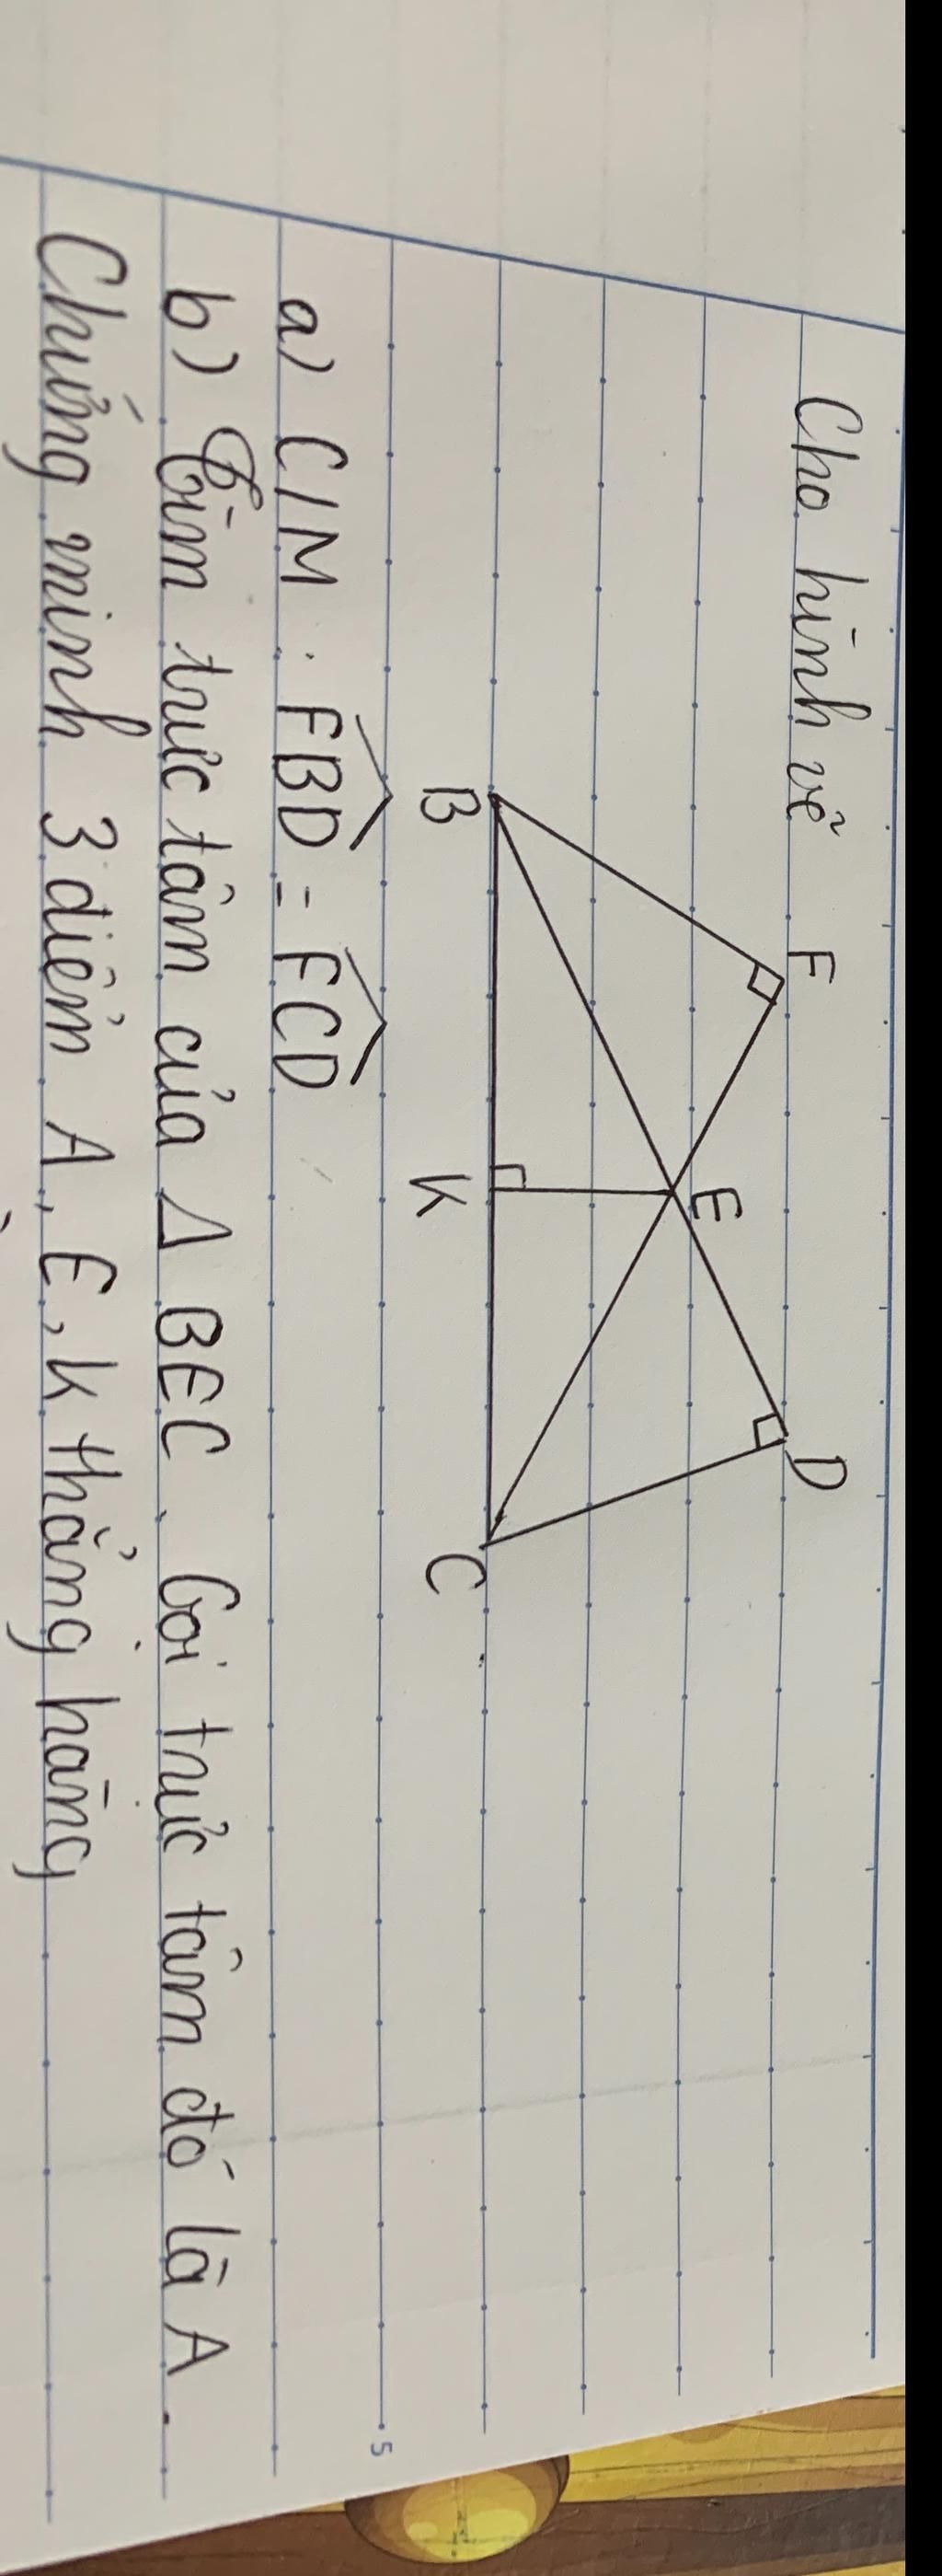 Cho hình vẽ
F
D
E
B
K
C
5
a) C/M : FBD = FCD
b) Tìm trực tâm của Δ BEC. Gọi trực tâm đó là A.
Chứng minh 3 điểm A, E, K thẳng hàng